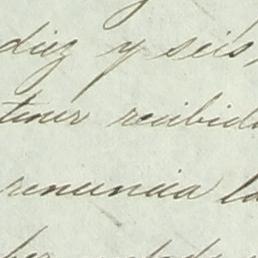 diez y seis,
tener recibid
renuncia la